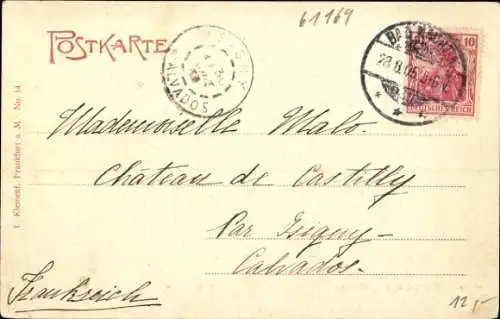 61169
POSTKARTE
CALVADOS
28.8.05
10
DEUTSCHES REICH
Mademoiselle Malo.
Château de Castilly
Par Isigny–
Calvados.
Frankreich
12,-
L. Klement, Frankfurt a. M. No. 14